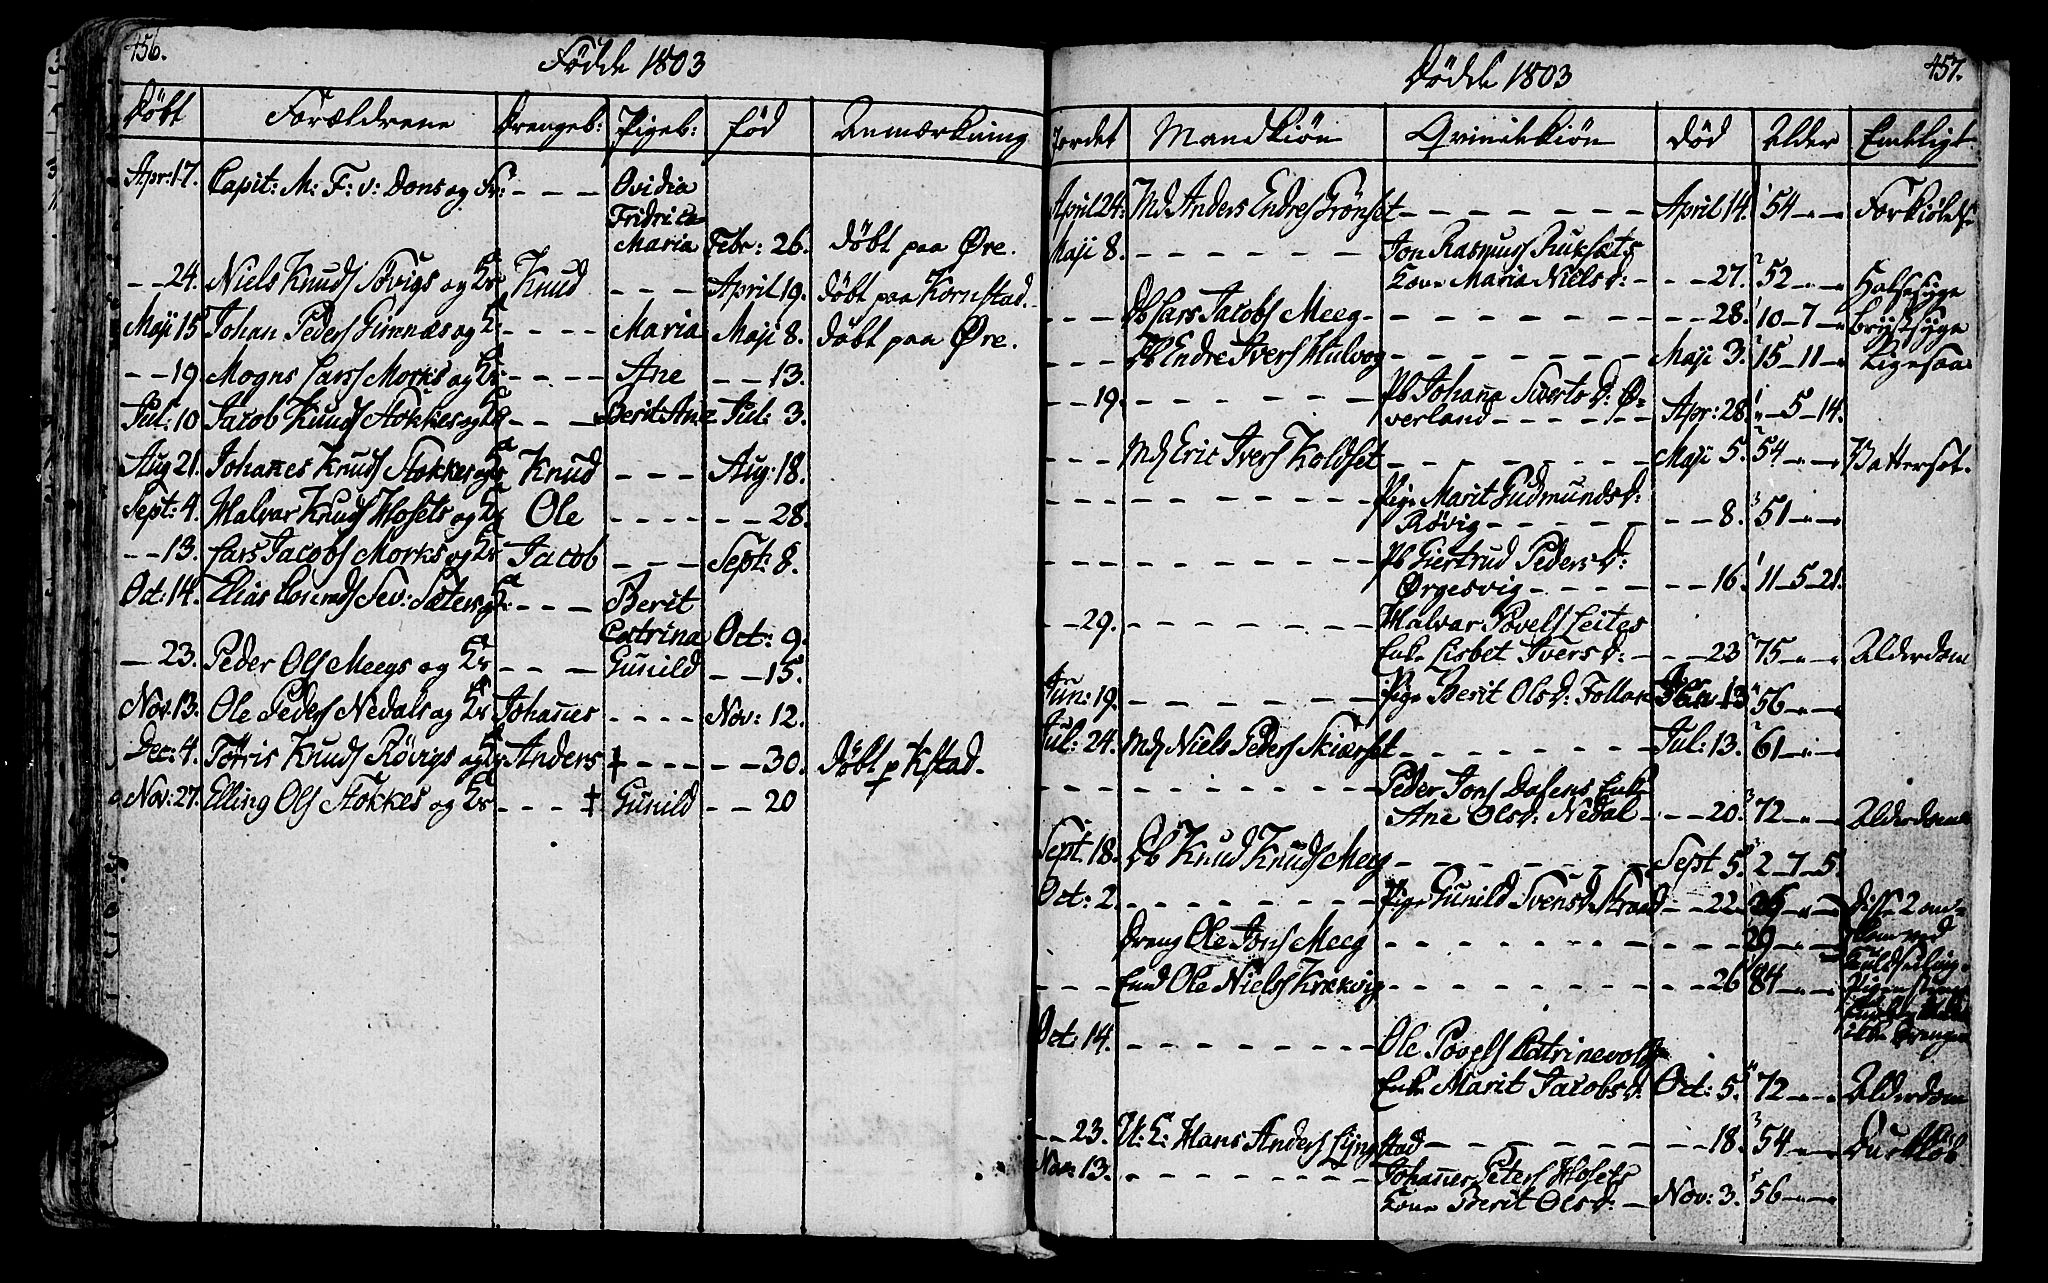 456.
Födde 1803
Döbt Forældrene Drengeb: Pigeb: fød Anmærkning
Apr: 17. Capit: M: F: v: Dons og Fr: - - - Ovidia
Fridrica
Maria Febr: 26. døbt paa Øre.
- - 24. Niels Knuds Søvigs og Knud - - - April 19. døbt paa Kornstad.
Maji 15 Johan Peders Gimnæs og - - - - Maria Maji 8. døbt paa Øre.
- - 19. Mogns Lars Morks og - - - - Ane - - 13.
Jul: 10 Jacob Knuds Stokkes og - - - Berit Ane Jul: 3.
Aug 21. Johanes Knuds Stokkes og Knud - - - Aug: 18.
Sept: 4. Halvar Knuds Hosets og Ole - - - - - - 28.
- - 13. Lars Jacobs Morks og Jacob - - - Sept: 8.
Oct: 14. Elias Sev: Sæters - - - Berit
Catrina Oct: 9.
- 23. Peder Ols Meegs og - - - Gunild - - 15.
Nov. 13. Ole Peders Nedals og Johannes - - - - Nov: 12.
Dec: 4. Tørris Knuds Røvigs og Anders + - - - - - - 30. Døbt p Kstad.
Nov: 27. Elling Ols Stokkes og - - - ‡ Gunild - - 20
457.
Dödde 1803
Jordet Mandkiön Qvindekiön död Alder Endeligt
April 24: Md Anders Endres Grönset - - - - - - April 14. 54 - " - Forkiölelse
Maji 8. - - - - - - Jon Rasmus
Kone Maria Niels d: - - 27. 52 - " - Halssyge
- - - Db Lars Jacobs Meeg - - - - - - - - 28. 10 - 7 - " Brystsyge
- - - Db Endre Ivers Hulvog - - - - - - Maji 3. 15 - 11 - " Ligesaa
- - 19. - - - - - - Pb Johana Siverts d: Ø-
verland - - - - - - Apr: 28. " - 5 - 14.
- - - Md Eric Ivers Koldset - - - - - - Maji 5. 54 - " - Vattersot.
- - - - - - - - - Pige Marit Gudmunds d:
Røvig - - - - - - - 8. 51 - " -
- - - - - - - - - Pb Giertrud Peders d:
Ørgesvig - - - - - - - 16. 11 - 5 - 21.
- - 29. - - - - - - Halvar Povels Leites
Enke Lisbet Ivers d: - - - 23 75 - " - Alderdom
Jun: 19. - - - - - - Pige Berit Ols d: Follan 13 56 - " -
Jul: 24. Md Niels Peders Skiærset - - - - - - Jul: 13. 61 - " -
- - - - - - - - - Peder Jons Dasens Enke
Ane Ols d: Nedal - - - 20. 72 - " - Alderdom
Sept: 18. Db Knud Knuds Meeg - - - - - - Sept 5. 2 - 7 - 5.
Oct: 2. - - - - - - Pige Gunild Svens d. Strand - - 22. 26 - " - Disse 2 om-
Dreng Ole Jons Meeg - - - - - - - - - 29 - " - kom ved
- - - End Ole Niels Krækvig - - - - - - 26 84 - " - Kuldseiling.
ikke Drengen
Oct: 14. - - - - - - Ole Povels Catrinevold
Enke Marit Jacobs d: Oct: 5. 72 - " - Alderdom
- - 23. U: L: Hans Anders Lyng-
stad - - - - - - - 18. 54 - " -
Nov: 13. - - - - - - Johanes Peters Hosets
Kone Berit Ols d: - Nov: 3. 56 - " -